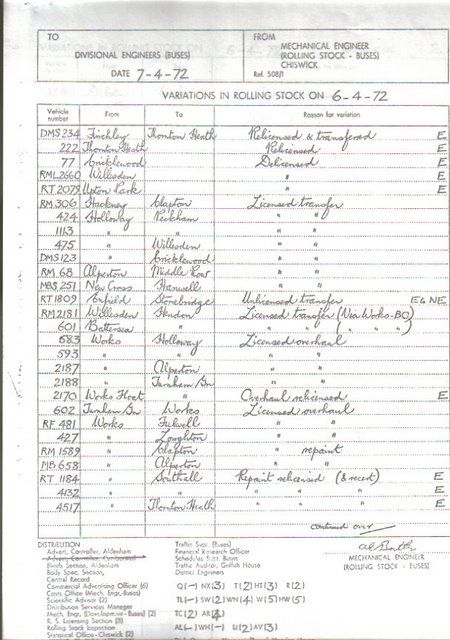 TO
DIVISIONAL ENGINEERS (BUSES)
DATE 7-4-72
FROM
MECHANICAL ENGINEER
(ROLLING STOCK - BUSES)
CHISWICK
Ref. 508/1
VARIATIONS IN ROLLING STOCK ON 6-4-72
Vehicle number From To Reason for variation
DMS 234 Finchley Thornton Heath Relicensed & transferred E
222 Thornton Heath Relicensed E
77 Cricklewood Delicensed E
RML 2660 Willesden " E
RT 2079 Upton Park " E
RM 306 Hackney Clapton Licensed transfer
424 Holloway Peckham " "
1113 " " " "
475 " Willesden " "
DMS 123 " Cricklewood " "
RM 68 Alperton Middle Row " "
MBS 251 New Cross Hanwell " "
RT 1809 Enfield Stonebridge Unlicensed transfer E & NE
RM 2181 Willesden Hendon Licensed transfer (Via Works-BO)
601 Battersea " " " ( " " " )
583 Works Holloway Licensed overhaul
593 " " " "
2187 " Alperton " "
2188 " Turnham Gn " "
2170 Works Float " Overhaul relicensed E
602 Turnham Gn Works Licensed overhaul
RF 481 Works Fulwell " "
427 " Loughton " "
RM 1589 " Clapton " repaint
MB 658 " Alperton " "
RT 1184 " Southall Repaint relicensed (& recert) E
4132 " " " " " E
4517 " Thornton Heath " " " E
continued over
MECHANICAL ENGINEER
(ROLLING STOCK - BUSES)
DISTRIBUTION
Advert. Controller, Aldenham
Bonds Section, Aldenham
Body Spec. Section,
Central Record
Commercial Advertising Officer (6)
Costs Office (Mech. Engr.-Buses)
Scientific Adviser (2)
Distribution Services Manager
Mech. Engr. (Development - Buses) (2)
R. S. Licensing Section (3)
Rolling Stock Inspection
Statistical Office - Chiswick (2)
Traffic Supt. (Buses)
Financial Research Officer
Schedules Supt. Buses
Traffic Auditor, Griffith House
District Engineers
Q(-) NX(3) T(2) HT(3) R(2)
TL(-) SW(2) WN(4) W(5) HW(5)
TC(2) AR(4)
AL(-) WH(-) U(2) AV(3)